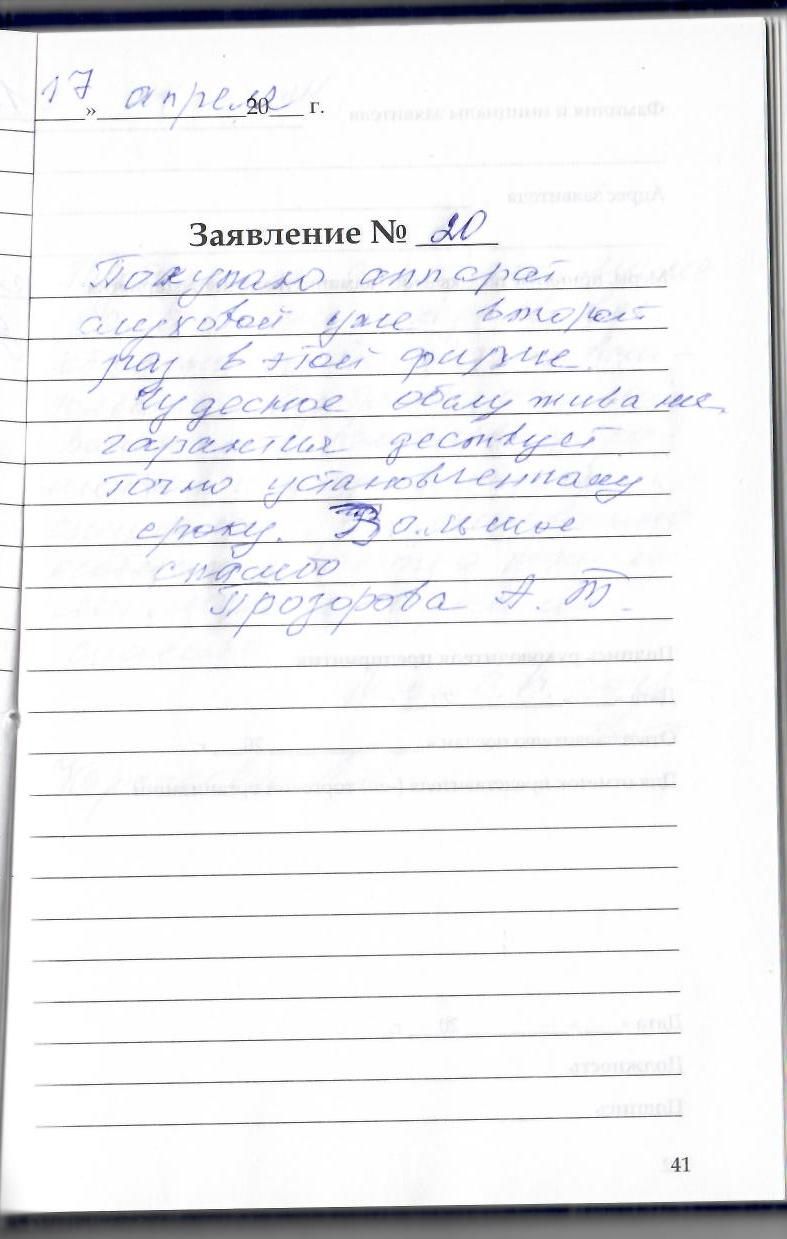 17 » апреля 20 г.
Заявление № 20
Покупаю аппарат
слуховой уже второй
раз в этой фирме.
Чудесное обслуживание,
гарантия дествует
точно установленному
сроку. Большое
спасибо
Прозорова А. Т.
41